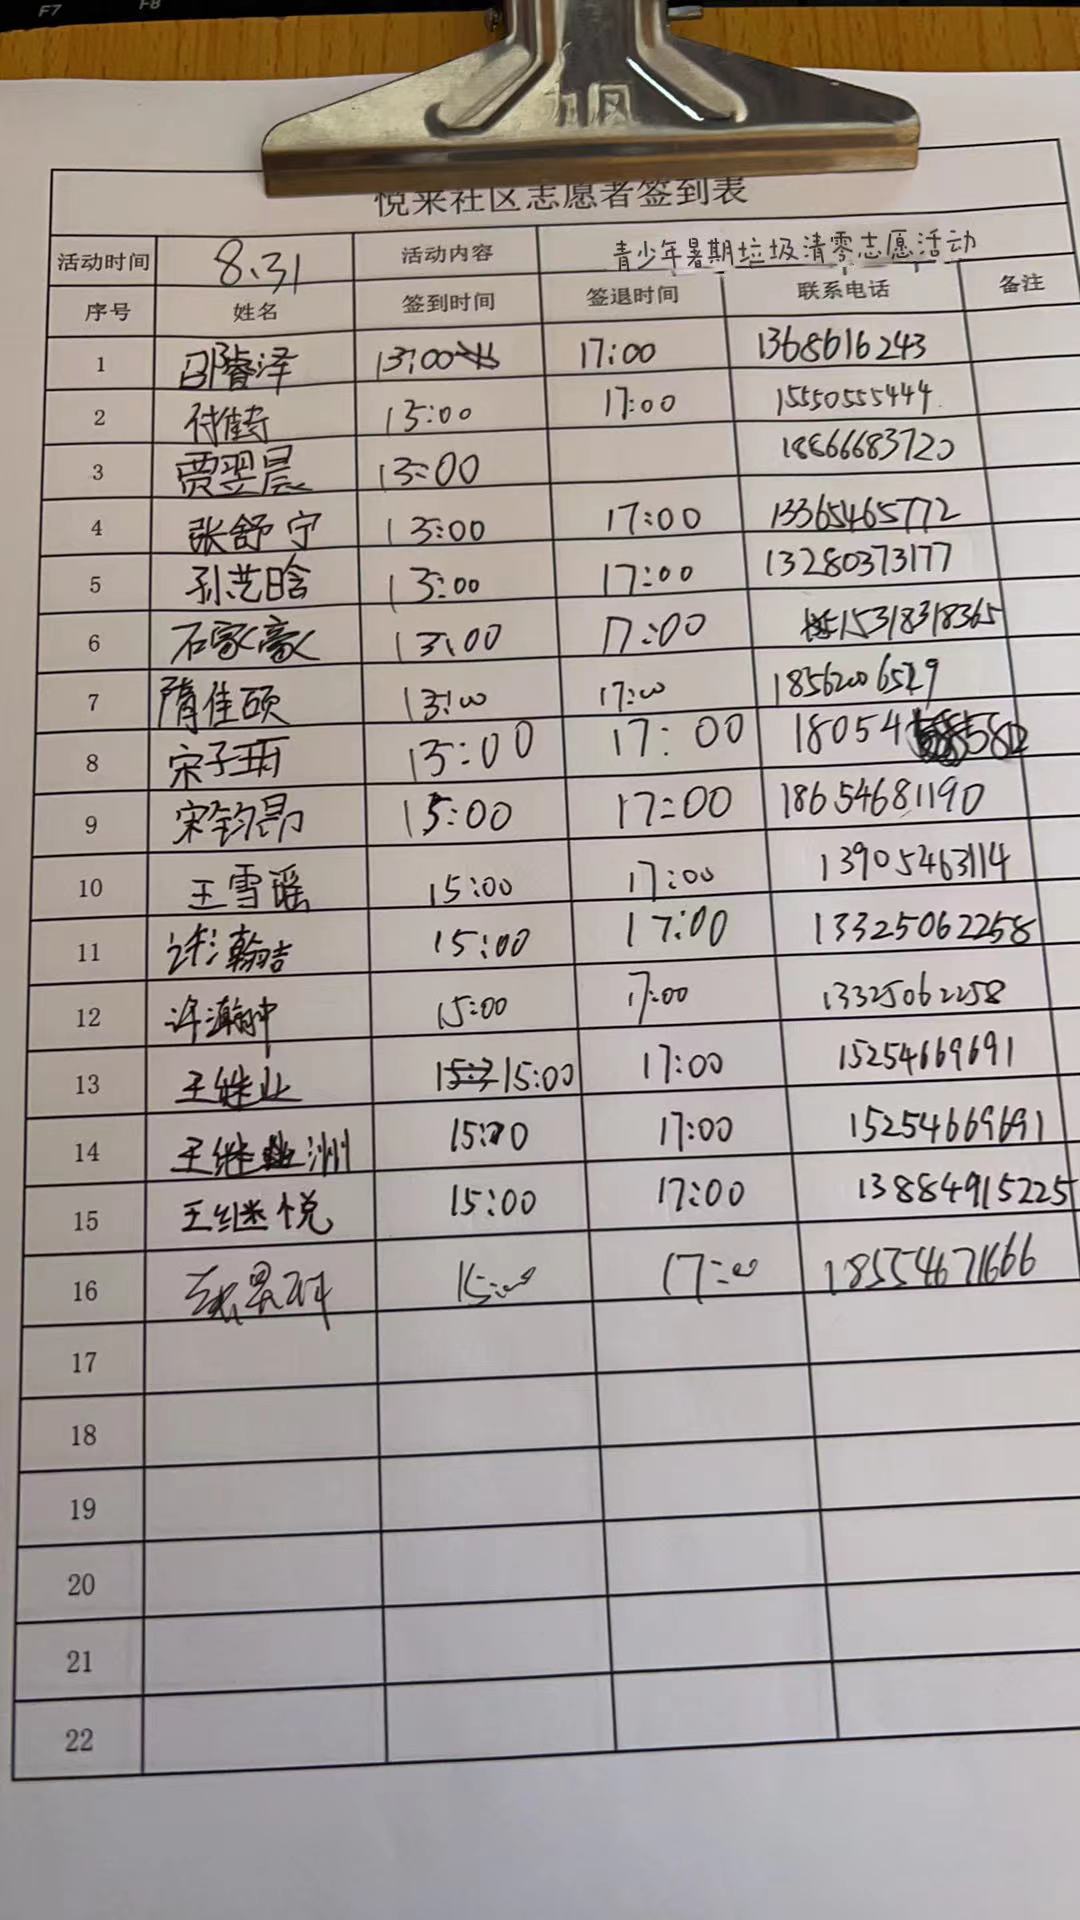 F7 F8
悦来社区志愿者签到表
活动时间 8.31 活动内容 青少年暑期垃圾清零志愿活动
序号 姓名 签到时间 签退时间 联系电话 备注
1 邵睿泽 13:00 17:00 1368616243
2 付 13:00 17:00 15550555444
3 贾翌晨 13:00 18866683720
4 张舒宁 13:00 17:00 13365465772
5 孙艺晗 13:00 17:00 13280373177
6 石家豪 13:00 17:00 15318318365
7 隋佳硕 13:00 17:00
8 宋子 15:00 17:00 18054
9 宋钧昂 15:00 17:00 18654681190
10 王雪瑶 15:00 17:00 13905463114
11 许瀚吉 15:00 17:00 13325062258
12 许瀚 15:00 17:00 13325062258
13 王继业 15:00 17:00 15254669691
14 王继洲 15:00 17:00 15254669691
15 王继悦 15:00 17:00 13884915225
16 15:00 17:00 18554671666
17
18
19
20
21
22